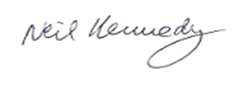 Neil Kennedy